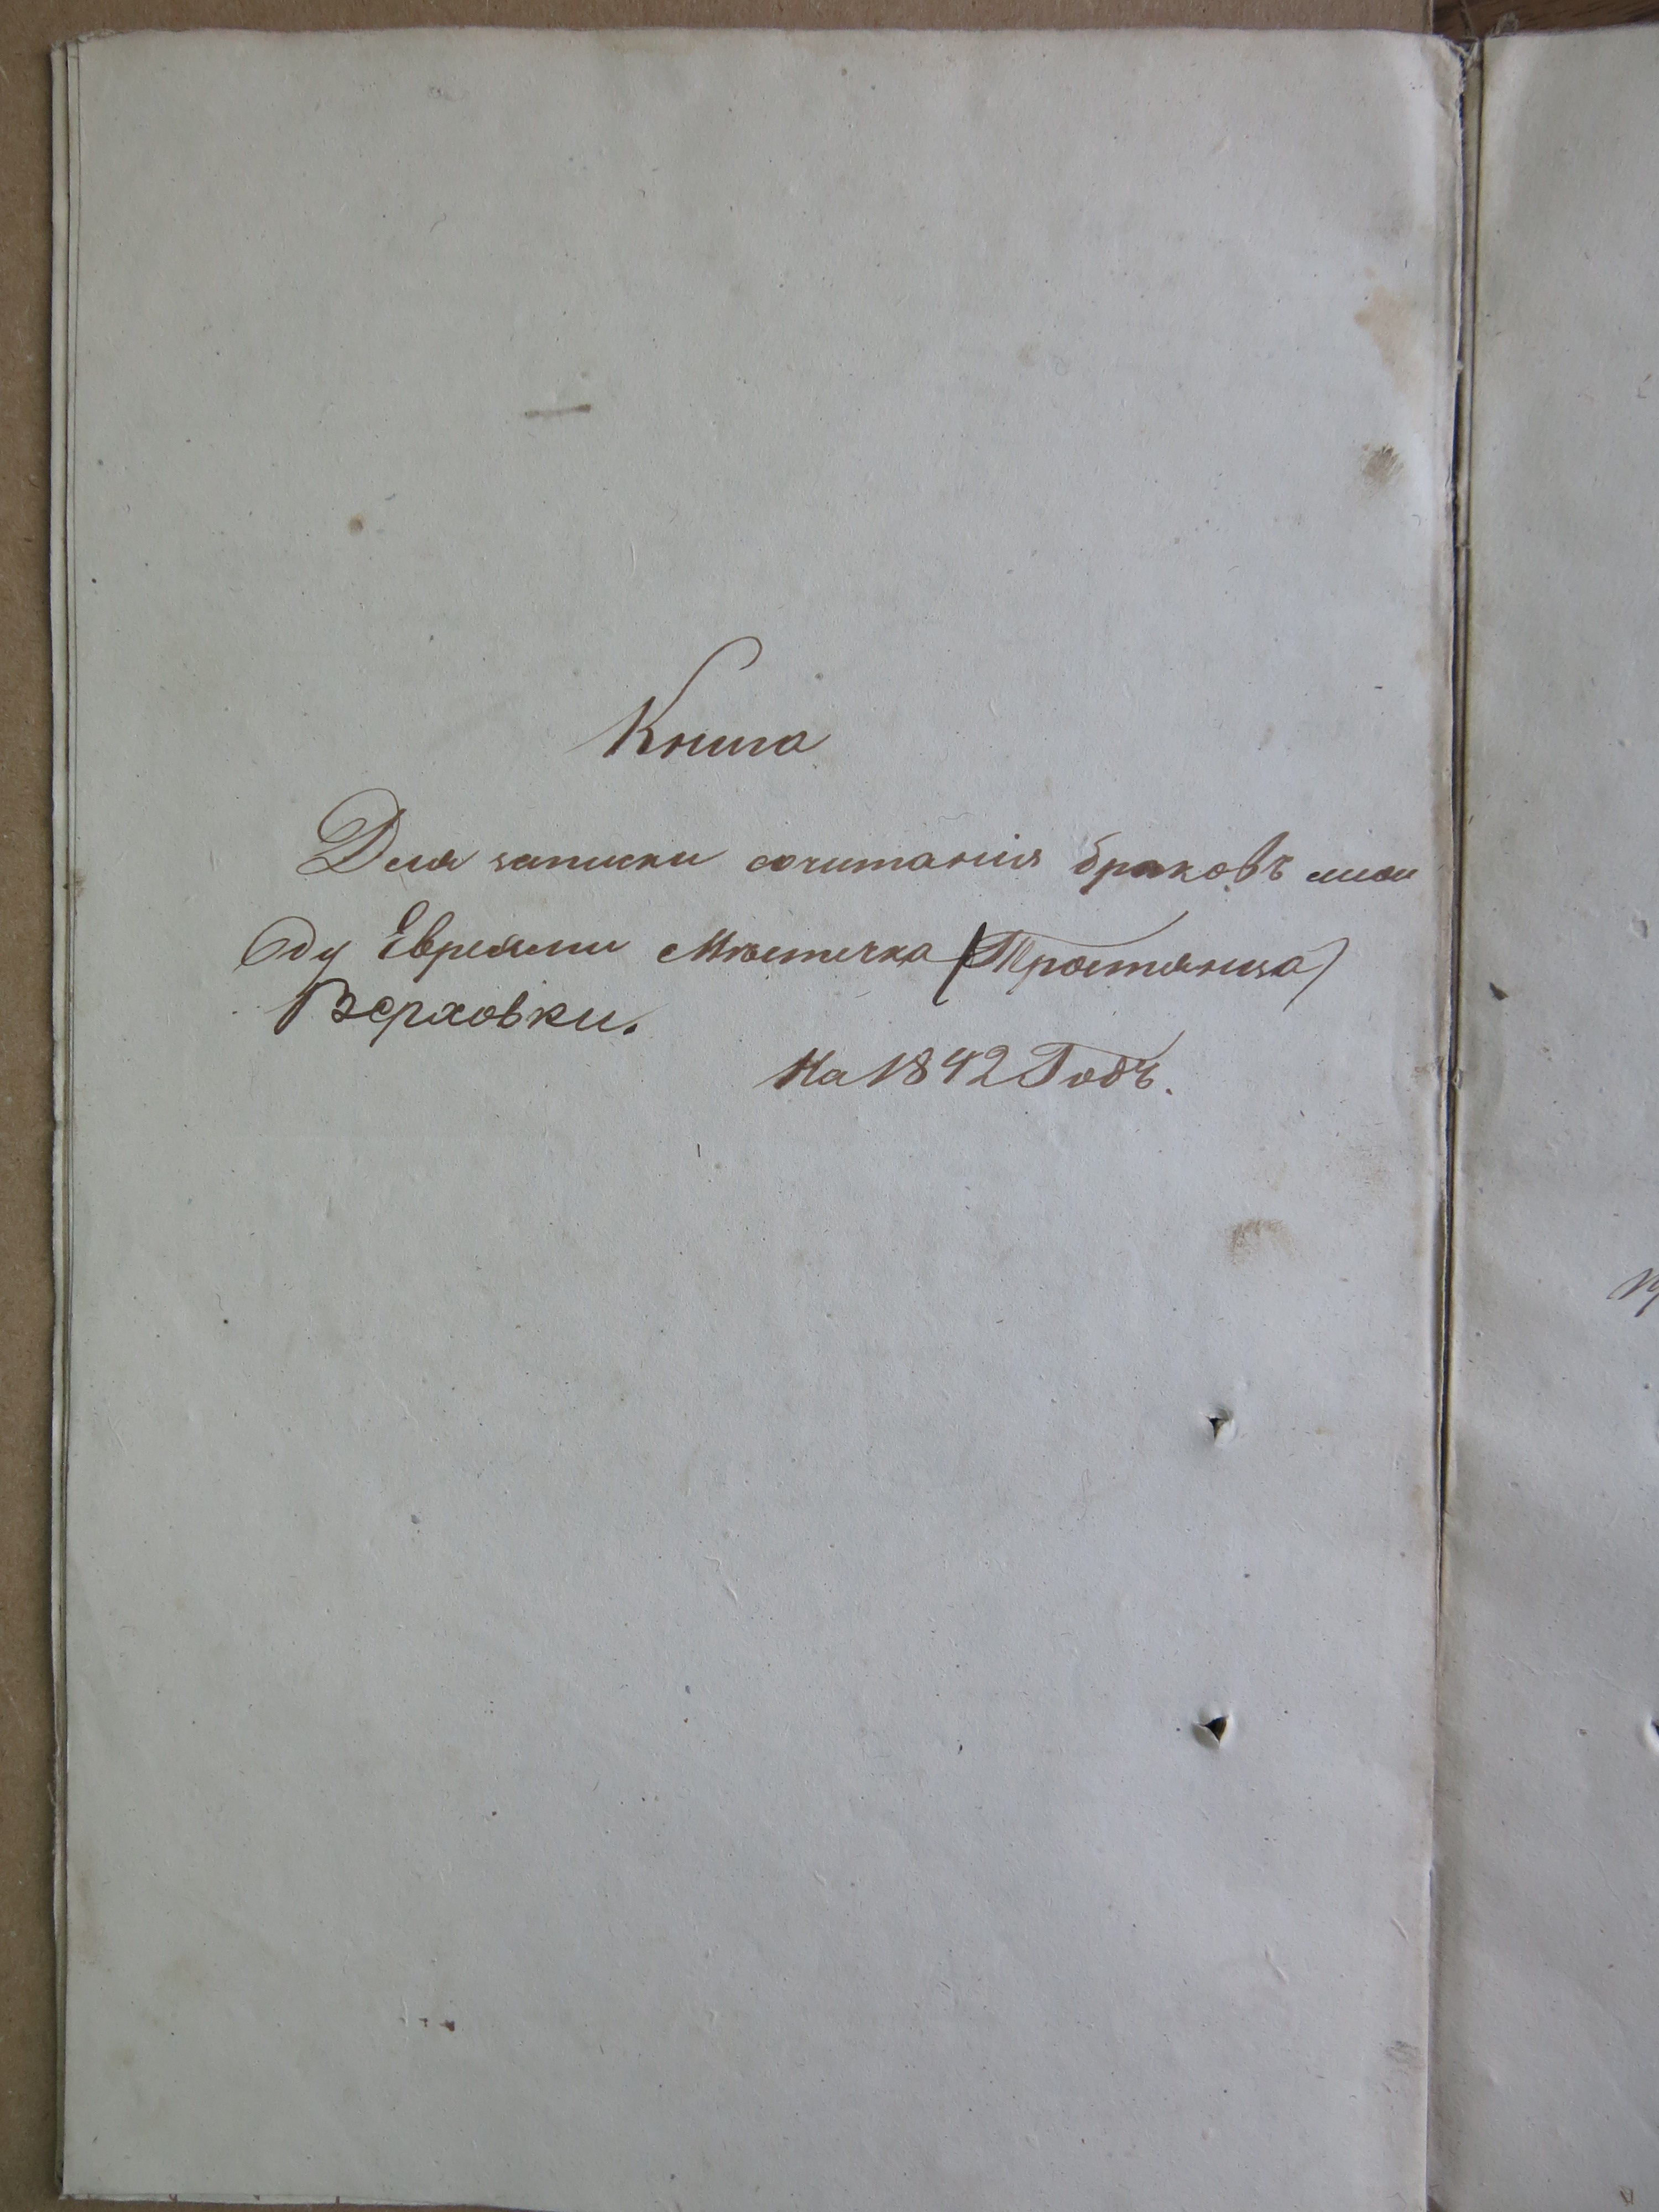 Книга
Для записки сочитанія браковъ меж
ду Евреями Мѣстечка (Тростянца)
Верховки.
На 1842 Годъ.